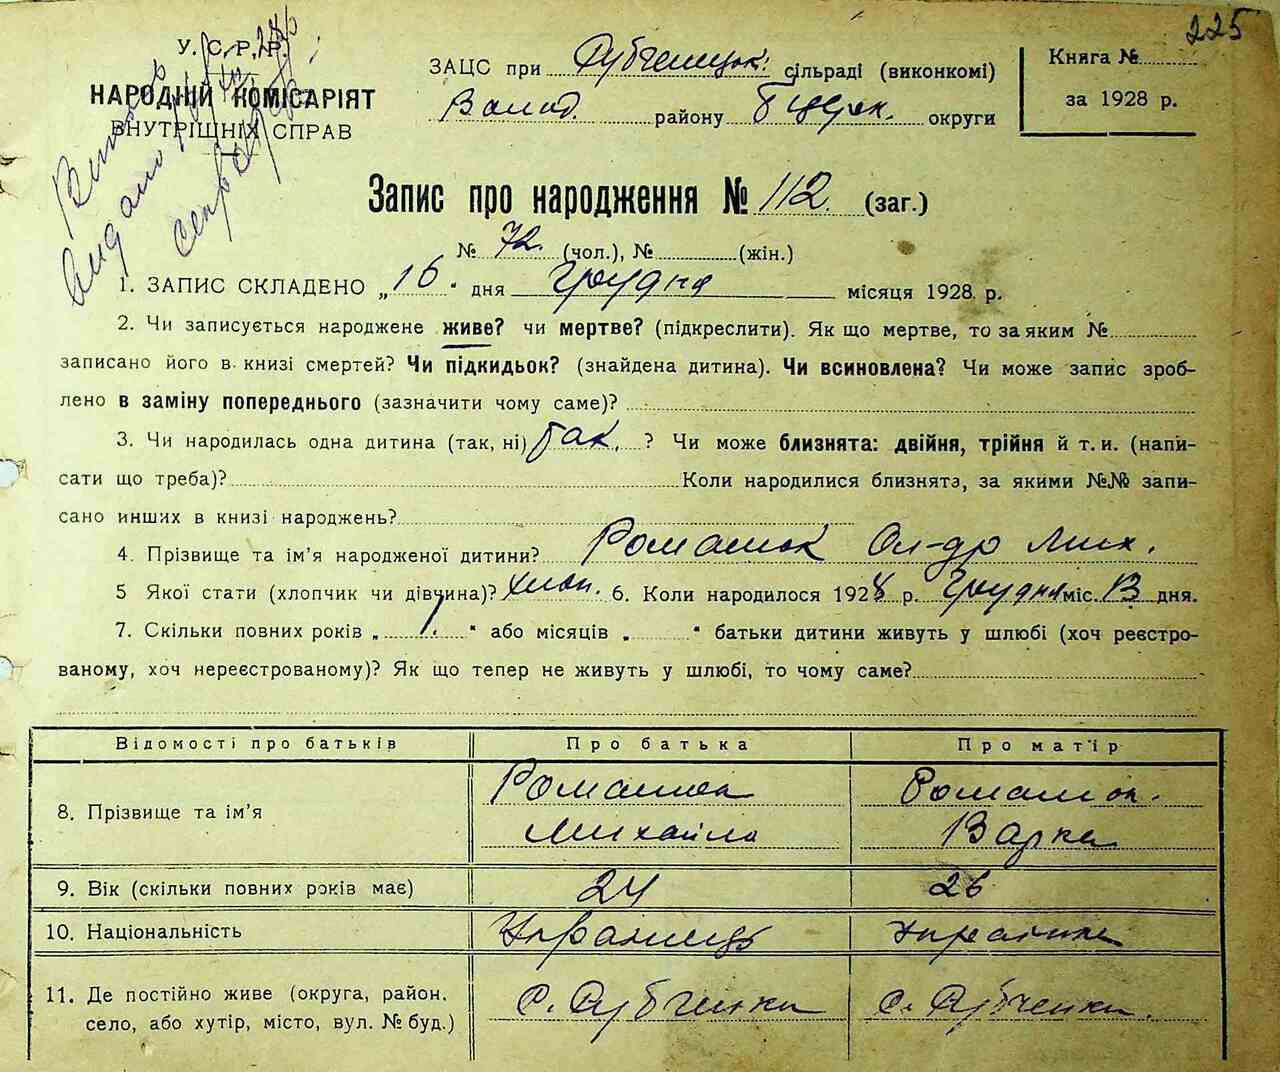 225
У. С. Р. Р.
НАРОДНІЙ КОМІСАРІЯТ
ВНУТРІШНІХ СПРАВ
ЗАЦС при Дубченецьк. сільраді (виконкомі)
Волод. району Білоцерк. округи
Книга №
за 1928 р.
Запис про народження № 112. (заг.)
№ 72. (чол.), № (жін.)
1. ЗАПИС СКЛАДЕНО „16.“ дня Грудня місяця 1928 р.
2. Чи записується народжене живе? чи мертве? (підкреслити). Як що мертве, то за яким №
записано його в книзі смертей? Чи підкидьок? (знайдена дитина). Чи всиновлена? Чи може запис зроб-
лено в заміну попереднього (зазначити чому саме)?
3. Чи народилась одна дитина (так, ні) так. ? Чи може близнята: двійня, трійня й т. и. (напи-
сати що треба)? Коли народилися близнята, за якими №№ запи-
сано инших в книзі народжень?
4. Прізвище та ім’я народженої дитини? Романюк Ол-др Мих.
5 Якої стати (хлопчик чи дівчина)? хлоп. 6. Коли народилося 1928 р. Грудня міс. 13 дня.
7. Скільки повних років „ 1. “ або місяців „ “ батьки дитини живуть у шлюбі (хоч реєстро-
ваному, хоч нереєстрованому)? Як що тепер не живуть у шлюбі, то чому саме?
Відомості про батьків Про батька Про матір
8. Прізвище та ім’я Романюк Романюк.
Михайло Варка
9. Вік (скільки повних років має) 24 26
10. Національність Українець Українка
11. Де постійно живе (округа, район, с. Дубченки с. Дубченки.
село, або хутір, місто, вул. № буд.)